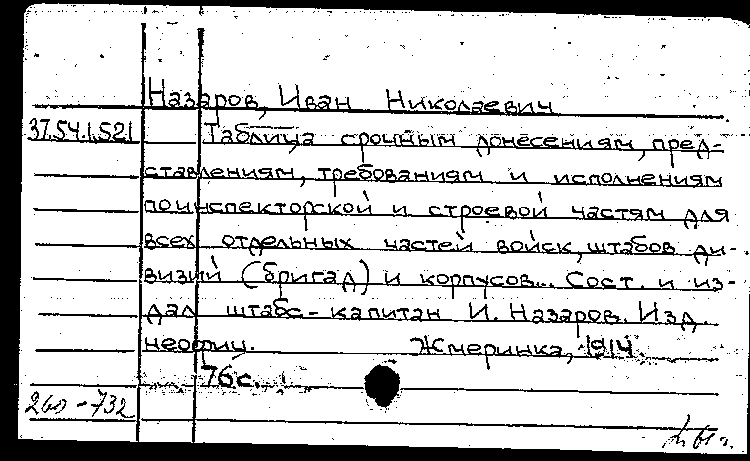 Назаров, Иван Николаевич
37.54.1.521 Таблица срочным донесениям, пред-
ставлениям, требованиям и исполнениям
по инспекторской и строевой частям для
всех отдельных частей войск, штабов ди-
визий (бригад) и корпусов... Сост. и из-
дал штабс-капитан И. Назаров. Изд.
неофиц. Жмеринка, 1914.
76 с.
260-732